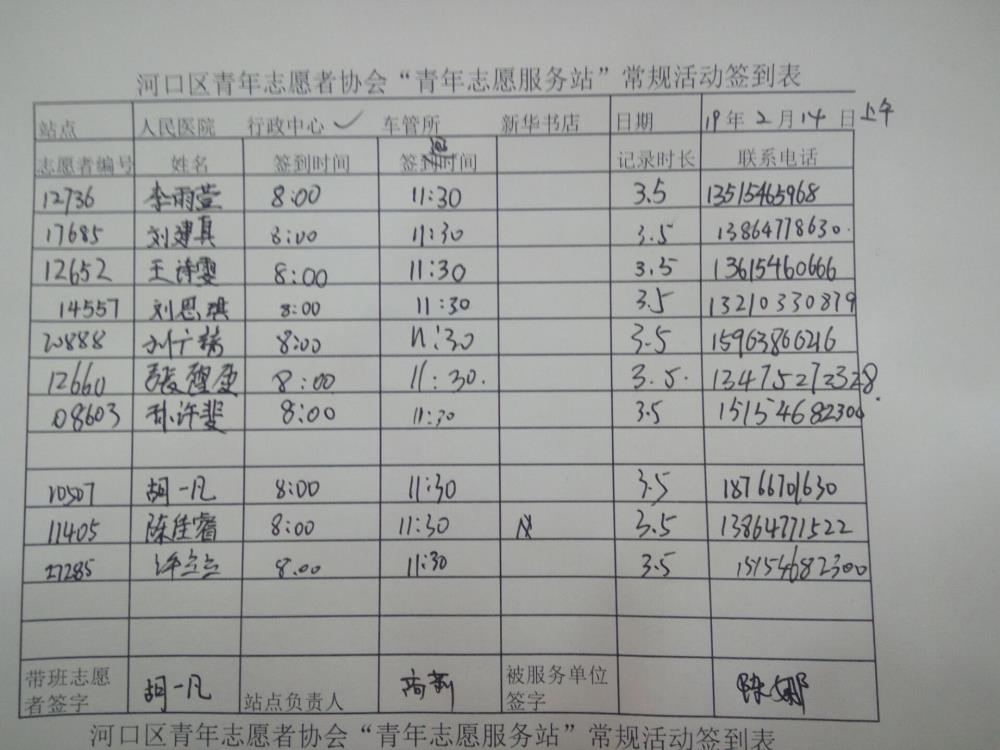 河口区青年志愿者协会“青年志愿服务站”常规活动签到表
站点 人民医院 行政中心 ✓ 车管所 新华书店 日期 19年2月14日上午
志愿者编号 姓名 签到时间 签到时间 记录时长 联系电话
12736 李雨萱 8:00 11:30 3.5 13515465968
17685 刘建真 8:00 11:30 3.5 13864778630
12652 王诗雯 8:00 11:30 3.5 13615460666
14557 刘思琪 8:00 11:30 3.5 13210330879
20888 8:00 11:30 3.5 15963866216
12660 8:00 11:30. 3.5. 13475272328.
08603 孙许斐 8:00 11:30 3.5 15154682300
10507 胡一凡 8:00 11:30 3.5 18766701630
11405 陈佳睿 8:00 11:30 3.5 13864771522
27285 许兰兰 8:00 11:30 3.5 15154682300
带班志愿者签字 胡一凡 站点负责人 高新 被服务单位签字 陈娜
河口区青年志愿者协会“青年志愿服务站”常规活动签到表